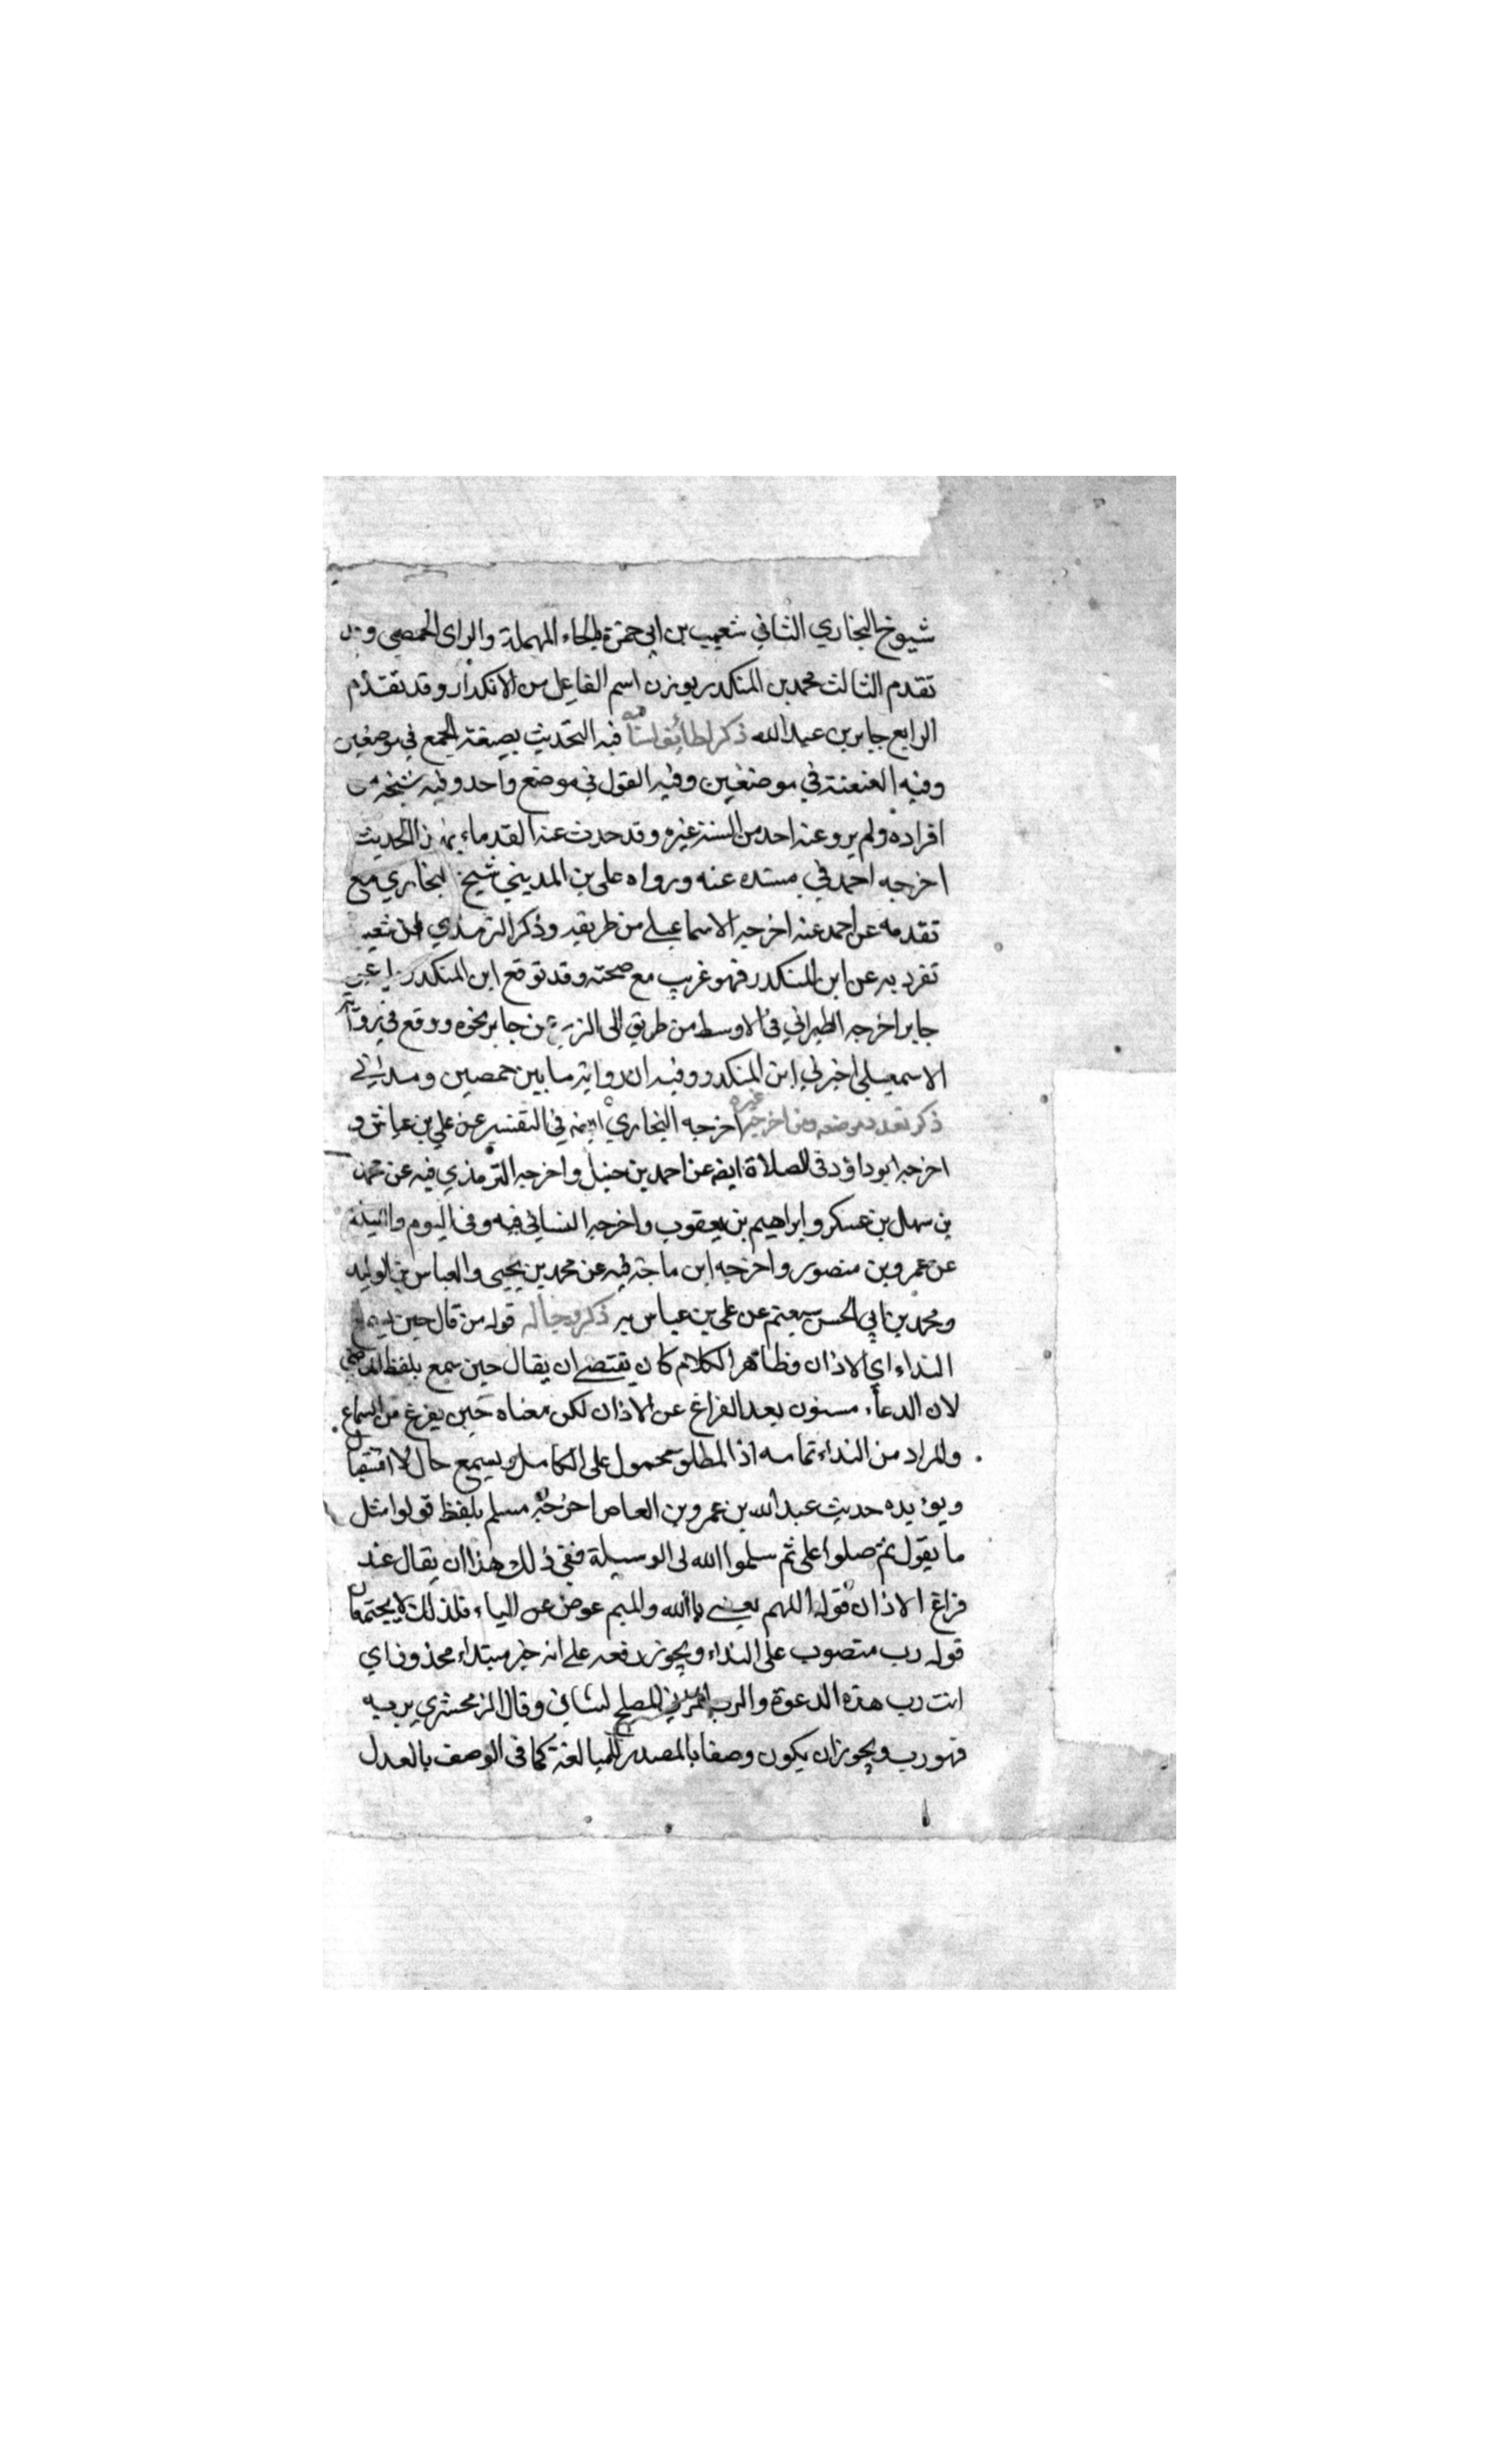 شيوخ البخاري الثاني شعيب بن ابي حمزة بالحاء المهملة والزاى الحمصي و
تقدم الثالث محمد بن المنكدر بوزن اسم الفاعل من الانكدار وقد تقدم
الرابع جابر بن عبد الله ذكر لطائف اسناده فيه التحديث بصيغة الجمع في موضعين
وفيه العنعنة في موضعين وفيه القول في موضع واحد وفيه شيخه من
افراده ولم يرو عنه احد من الستة غيره وقد حدث عنه القدماء بهذا الحديث
اخرجه احمد في مسنده عنه ورواه على بن المديني شيخ البخاري مع
تقدمه عن احمد عنه اخرجه الاسماعيلي من طريقه وذكر الترمذي ان شعيب
تفرد به عن ابن المنكدر فهو غريب مع صحته وقد توقع ابن المنكدر عن
جابر اخرجه الطبراني فى الاوسط من طريق ابى الزبير عن جابر نحوه ووقع في رواية
الاسمعيلي اخبرني ابن المنكدر وفيه ان رواية ما بين حمصيين ومدنى
ذكر تعدد موضعه ومن اخرجه غيره اخرجه البخاري ايضه في التفسير عن علي بن عياش و
اخرجه ابو داؤد فى الصلاة ايضه عن احمد بن حنبل واخرجه الترمذي فيه عن محمد
بن سهل بن عسكر وابراهيم بن يعقوب واخرجه النسائي فيه وفى اليوم والليلة
عن عمرو بن منصور واخرجه ابن ماجة فيه عن محمد بن يحيى والعباس بن الوليد
ومحمد بن ابي الحسن سبعتم عن على بن عياش به ذكر رجاله قوله من قال حين يسمع
النداء اي الاذان وظاهر الكلام كان يقتضى ان يقال حين سمع بلفظ الماضي
لان الدعاء مسنون بعد الفراغ عن الاذان لكن معناه حين يفرغ من السماع
والمراد من النداء تمامه اذ المطلق محمول على الكامل ويسمع حال لا استقبال
ويؤيده حديث عبد الله بن عمرو بن العاص اخرجه مسلم بلفظ قولوا مثل
ما يقول ثم صلوا على ثم سلموا الله لى الوسيلة ففى ذلك هذا ان يقال عند
فراغ الاذان قوله اللهم يعنى يا الله والميم عوض عن الياء فلذلك لا يجتمعان
قوله رب منصوب على النداء ويجوز رفعه على انه خبر مبتداء محذوف اي
انت رب هذه الدعوة والرب المربي المصلح لشاني وقال الزمخشري يربيه
فهو رب ويجوز ان يكون وصفا بالمصدر للمبالغة كما فى الوصف بالعدل